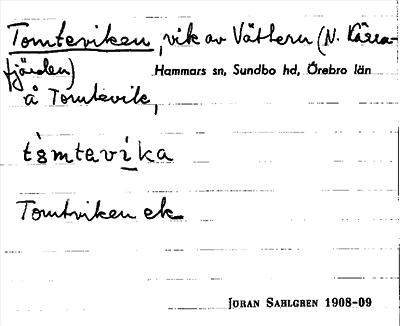 Tomteviken, vik av Vättern (N. Kärra-
fjärden)
Hammars sn, Sundbo hd, Örebro län
å Tomtevik,
tòmtevika
Tomtviken ek
JÖRAN SAHLGREN 1908-09